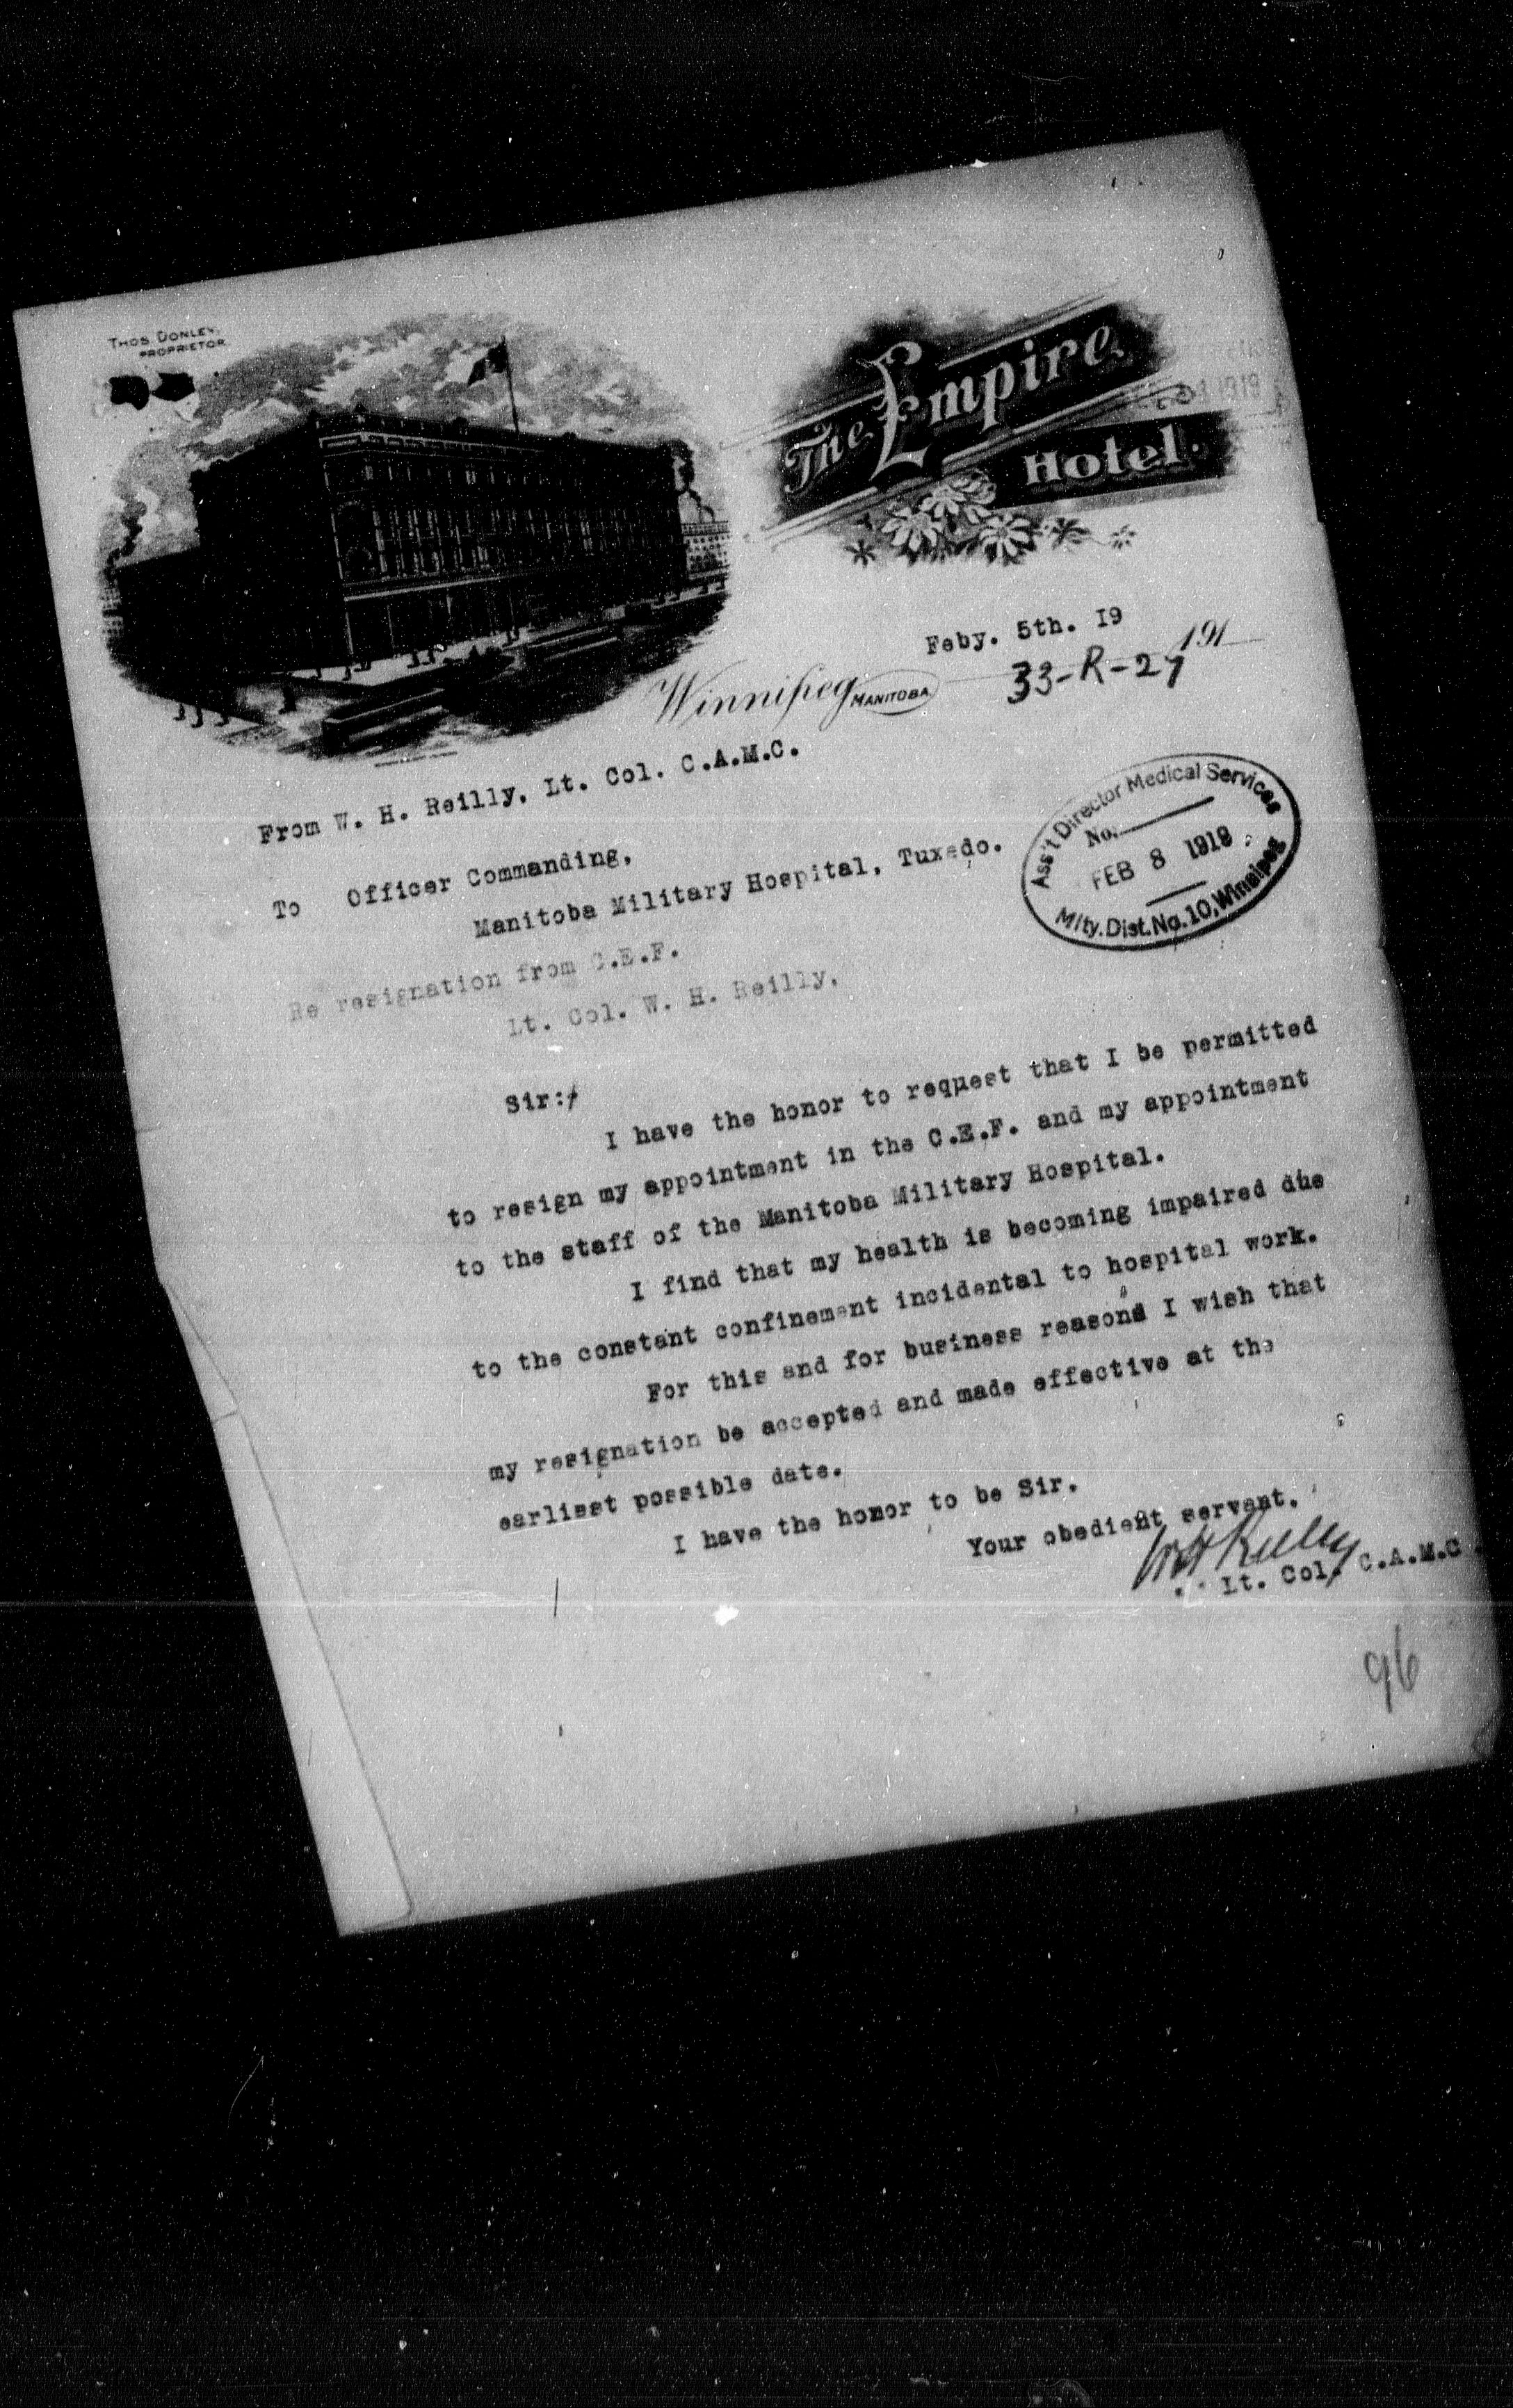 THOS. DONLEY,
PROPRIETOR.
The Empire
Hotel.
1919
Feby. 5th. I9
Winnipeg MANITOBA 191
33-R-27
From W. H. Reilly, Lt. Col. C.A.M.C.
To Officer Commanding,
Manitoba Military Hospital, Tuxedo.
Ass't Director Medical Services
No.
FEB 8 1919
Mlty. Dist. No. 10, Winnipeg
Re resignation from C.E.F.
Lt. Col. W. H. Reilly.
Sir:/
I have the honor to request that I be permitted
to resign my appointment in the C.E.F. and my appointment
to the staff of the Manitoba Military Hospital.
I find that my health is becoming impaired due
to the constant confinement incidental to hospital work.
For this and for business reasons I wish that
my resignation be accepted and made effective at the
earliest possible date.
I have the honor to be Sir.
Your obedient servant.
WH Reilly
Lt. Col. C.A.M.C.
96